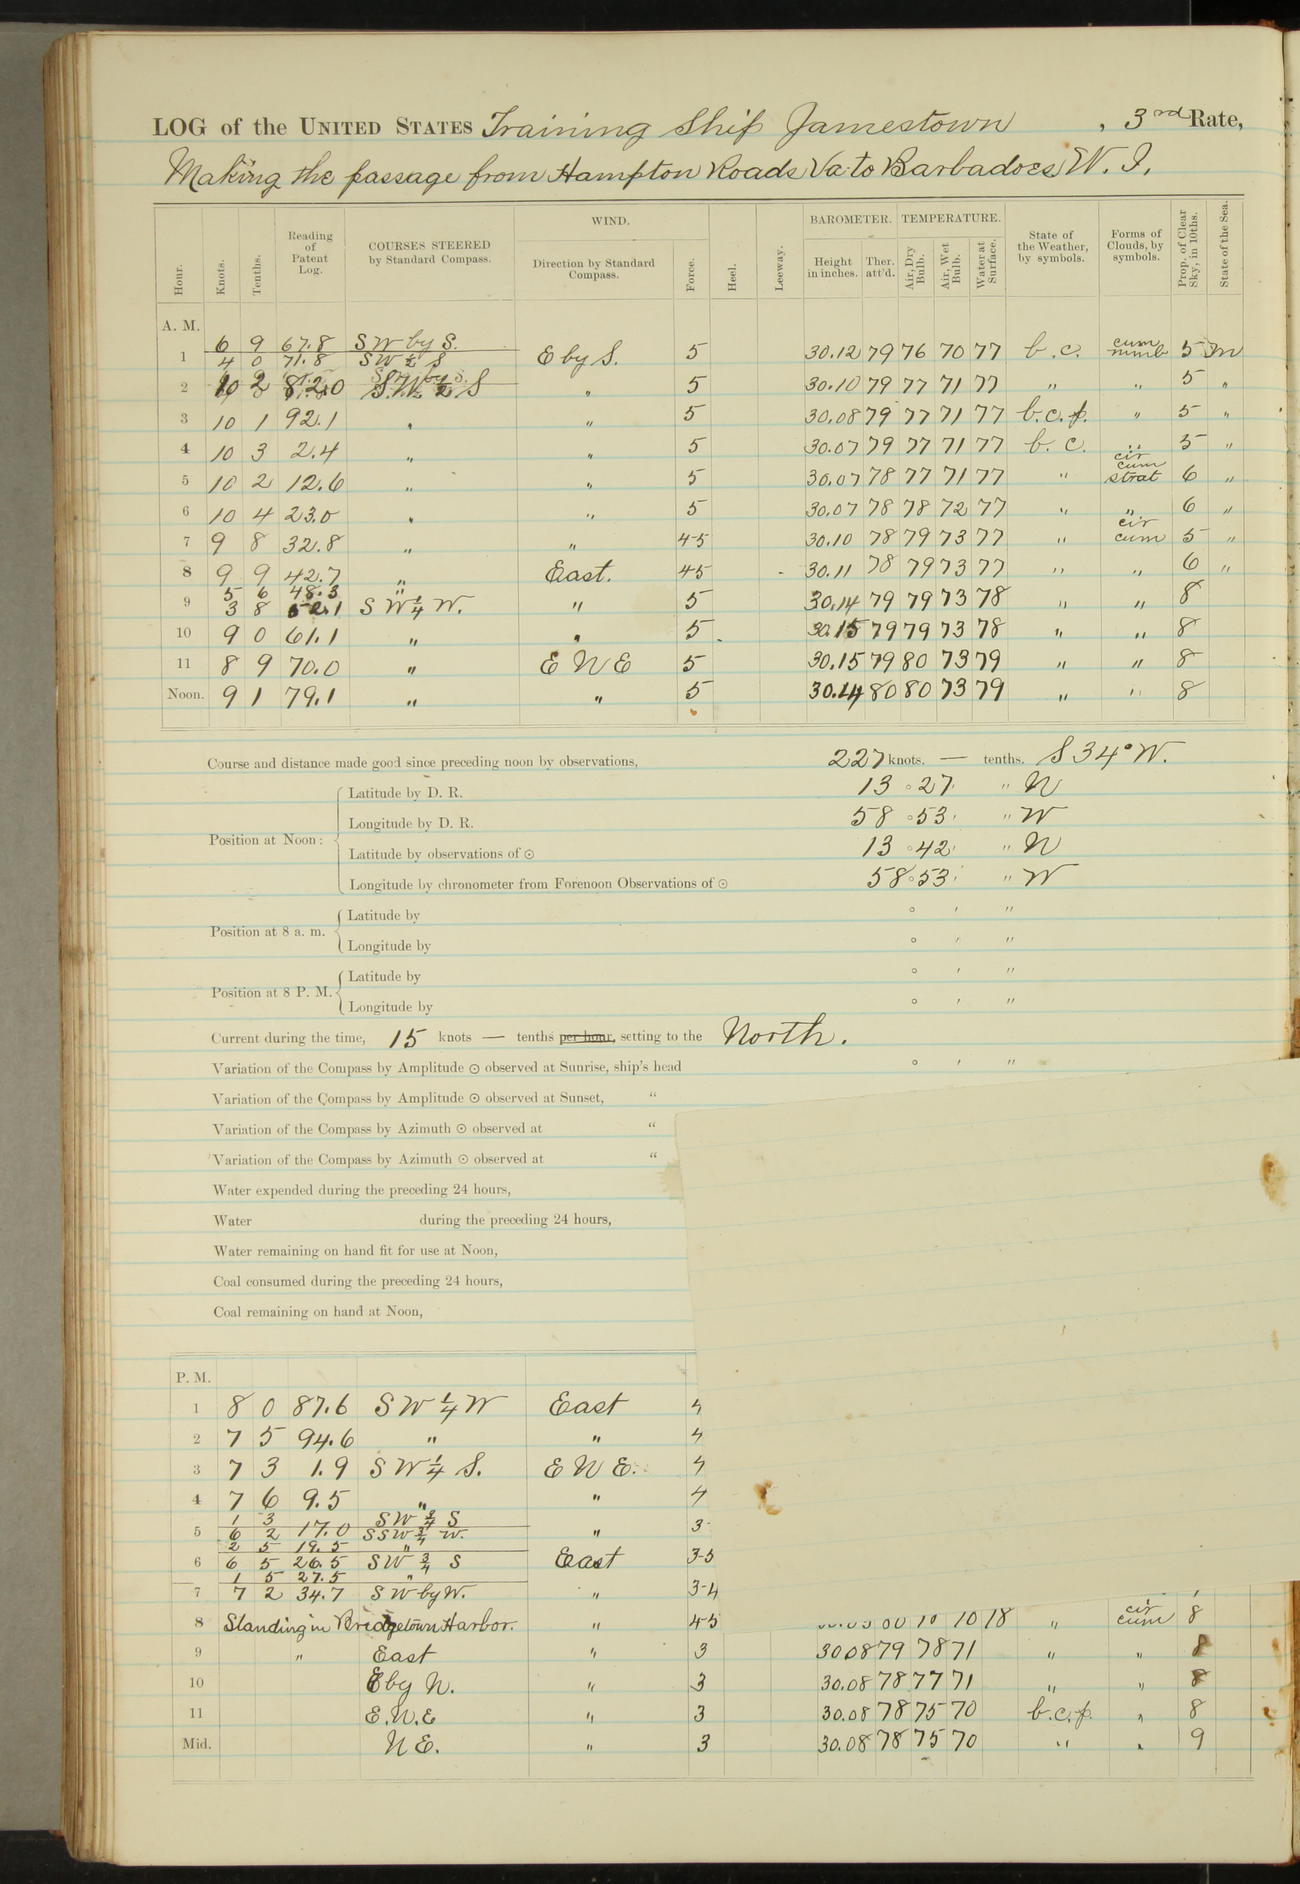 LOG of the UNITED STATES Training Ship Jamestown , 3rd Rate,
Making the passage from Hampton Roads Va to Barbadoes W. I.
Hour. Knots. Tenths. Reading of Patent Log. COURSES STEERED by Standard Compass. WIND. Direction by Standard Compass. Force. Heel. Leeway. BAROMETER. Height in inches. Ther. att'd. TEMPERATURE. Air, Dry Bulb. Air, Wet Bulb. Water at Surface. State of the Weather, by symbols. Forms of Clouds, by symbols. Prop. of Clear Sky, in 10ths. State of the Sea.
A. M.
6 9 67.8 SW by S.
1 4 0 71.8 SW ½ S E by S. 5 30.12 79 76 70 77 b.c. cum nimb 5 m
2 10 2 82.0 S.W. ½ S " 5 30.10 79 77 71 77 " " 5 "
3 10 1 92.1 " " 5 30.08 79 77 71 77 b.c.p. " 5 "
4 10 3 2.4 " " 5 30.07 79 77 71 77 b. c. " 5 "
5 10 2 12.6 " " 5 30.07 78 77 71 77 " cir cum strat 6 "
6 10 4 23.0 " " 5 30.07 78 78 72 77 " " 6 "
7 9 8 32.8 " " 4-5 30.10 78 79 73 77 " cir cum 5 "
8 9 9 42.7 " East. 45 30.11 78 79 73 77 " " 6 "
5 6 48.3 "
9 3 8 52.1 S W ¼ W. " 5 30.14 79 79 73 78 " " 8
10 9 0 61.1 " " 5 30.15 79 79 73 78 " " 8
11 8 9 70.0 " E N E 5 30.15 79 80 73 79 " " 8
Noon. 9 1 79.1 " " 5 30.14 80 80 73 79 " " 8
Course and distance made good since preceding noon by observations, 227 knots. — tenths. S 34° W.
Position at Noon:
Latitude by D. R. 13 ° 27 ' " N
Longitude by D. R. 58 ° 53 ' " W
Latitude by observations of ☉ 13 ° 42 ' " N
Longitude by chronometer from Forenoon Observations of ☉ 58 ° 53 ' " W
Position at 8 a. m.
Latitude by ° ' "
Longitude by ° ' "
Position at 8 P. M.
Latitude by ° ' "
Longitude by ° ' "
Current during the time, 15 knots — tenths per hour, setting to the North.
Variation of the Compass by Amplitude ☉ observed at Sunrise, ship's head ° ' "
Variation of the Compass by Amplitude ☉ observed at Sunset, "
Variation of the Compass by Azimuth ☉ observed at "
Variation of the Compass by Azimuth ☉ observed at "
Water expended during the preceding 24 hours,
Water during the preceding 24 hours,
Water remaining on hand fit for use at Noon,
Coal consumed during the preceding 24 hours,
Coal remaining on hand at Noon,
P. M.
1 8 0 87.6 S W ¼ W East 4
2 7 5 94.6 " " 4
3 7 3 1.9 S W ¼ S. E N E. 4
4 7 6 9.5 " " 4
1 3 SW ¾ S
5 6 2 17.0 SSW ¾ W. " 3-
2 5 19.5 "
6 6 5 26.5 SW ¾ S East 3-5
1 5 27.5 "
7 7 2 34.7 S W by W. " 3-4
8 Standing in Bridgetown Harbor. " 45 " cir cum 8
9 " East " 3 30.08 79 78 71 " " 8
10 E by N. " 3 30.08 78 77 71 " " 8
11 E.N.E " 3 30.08 78 75 70 b.c.p. " 8
Mid. N E. " 3 30.08 78 75 70 " " 9